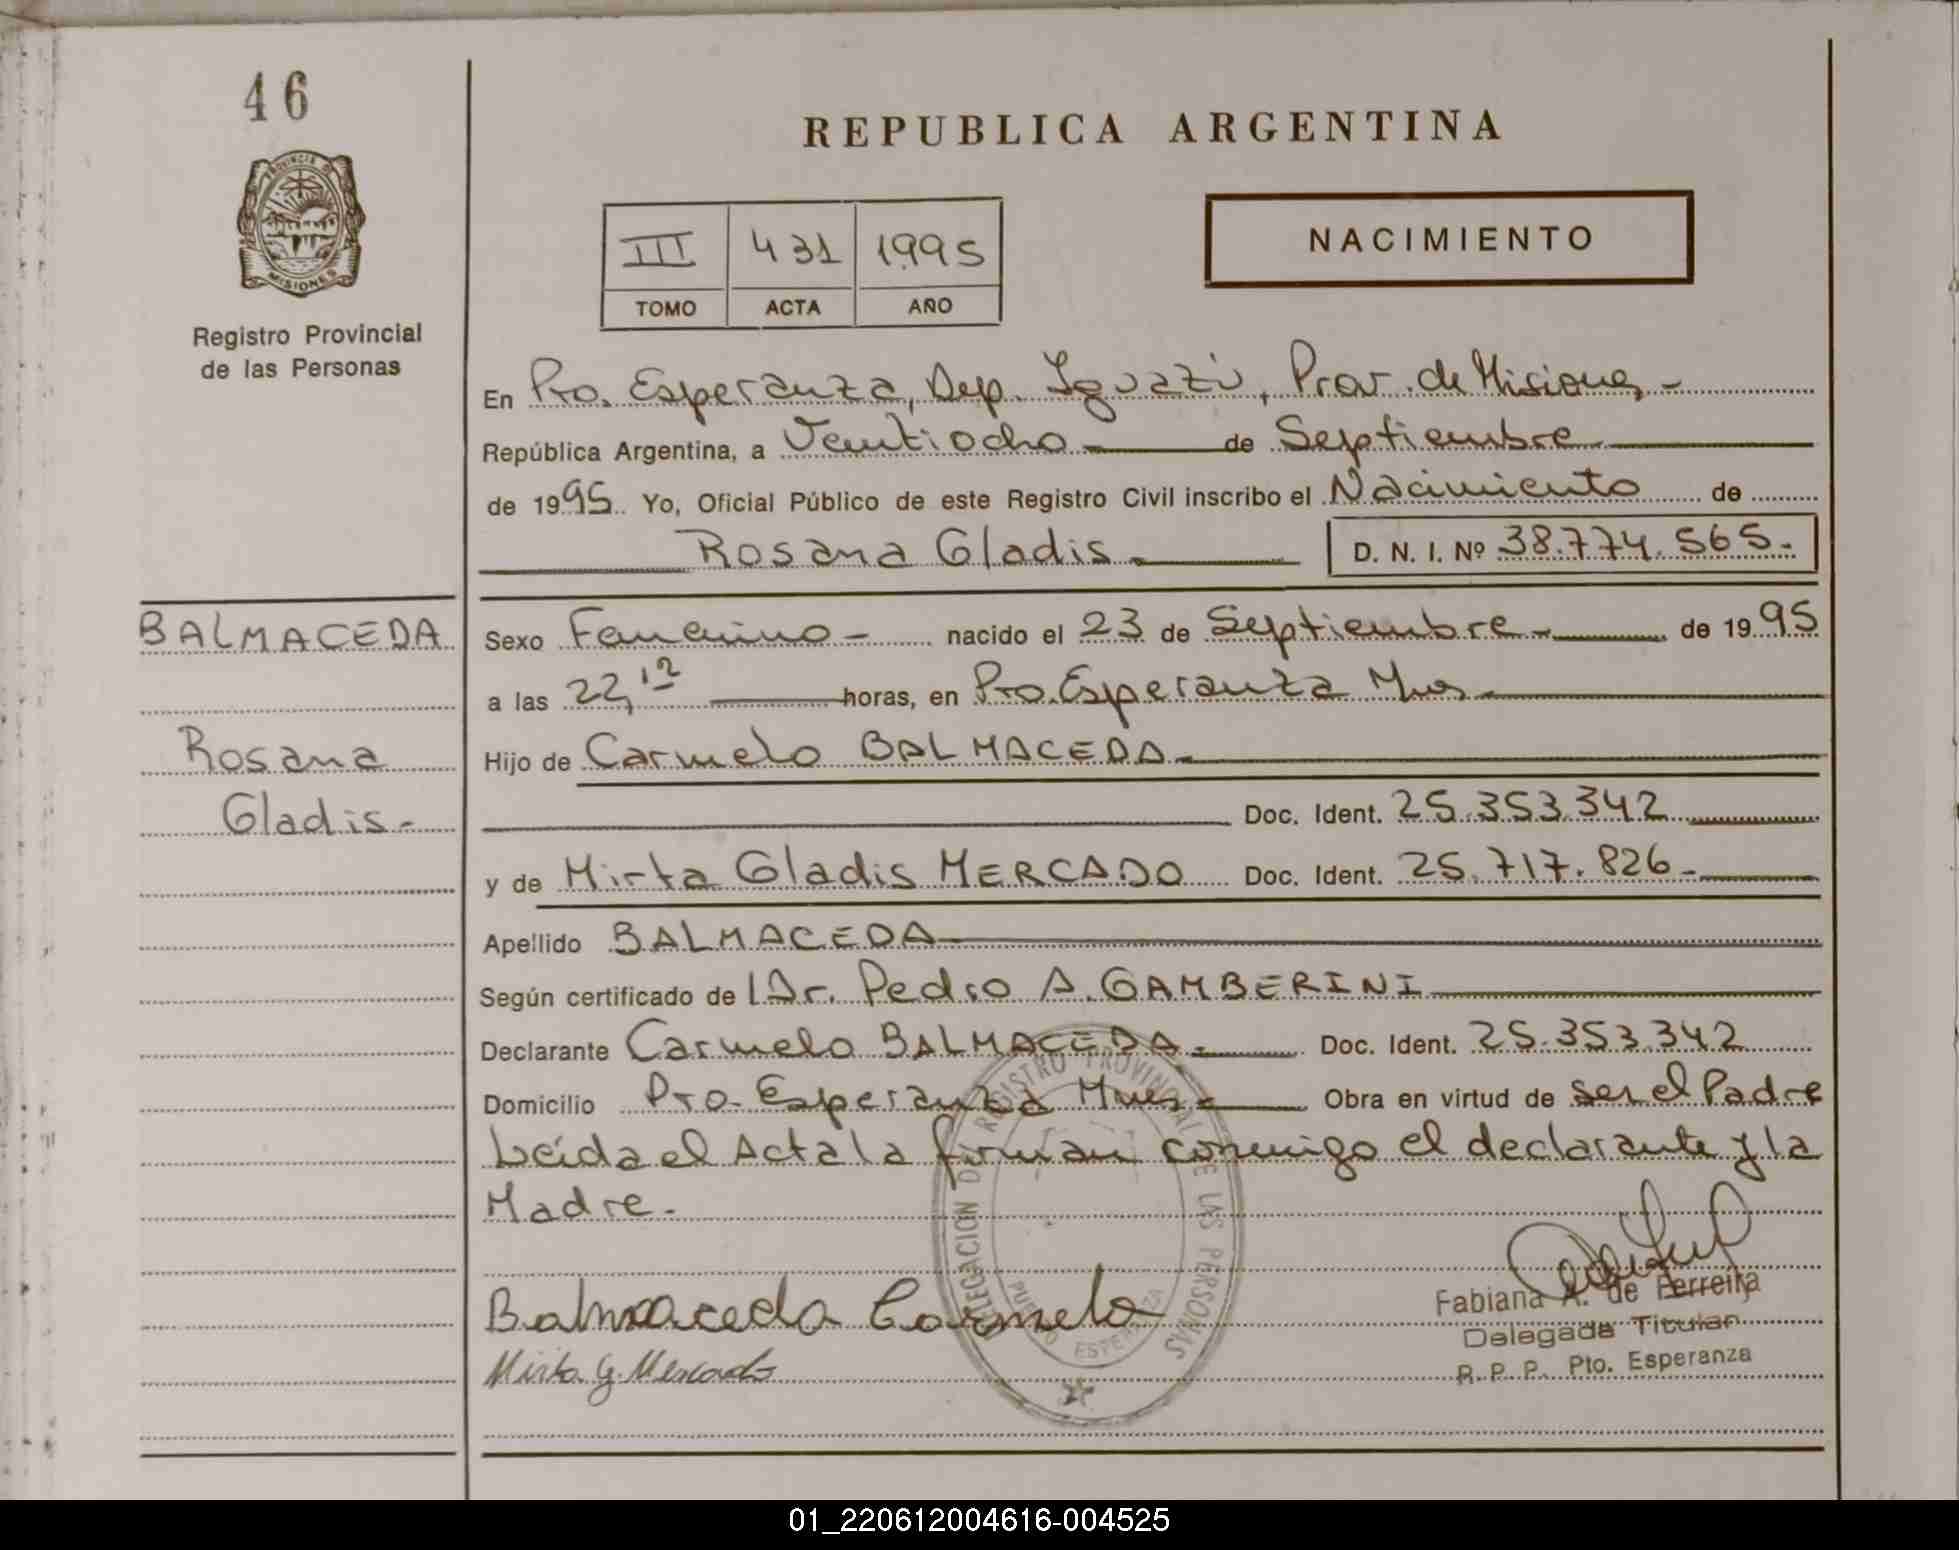 46
PROVINCIA DE
MISIONES
Registro Provincial
de las Personas
REPUBLICA ARGENTINA
NACIMIENTO
III 431 1995
TOMO ACTA AÑO
En Pto. Esperanza, Dep. Iguazú, Prov. de Misiones,-
República Argentina, a Ventiocho de Septiembre
de 1995 Yo, Oficial Público de este Registro Civil inscribo el Nacimiento de
Rosana Gladis D. N. I. Nº 38.774.565.-
BALMACEDA
Rosana
Gladis.-
Sexo Femenino - nacido el 23 de Septiembre de 1995
a las 22,12 horas, en Pto. Esperanza Mnes.
Hijo de Carmelo BALMACEDA
Doc. Ident. 25.353.342
y de Mirta Gladis MERCADO Doc. Ident. 25.717.826-
Apellido BALMACEDA
Según certificado de Dr. Pedro A. GAMBERINI
Declarante Carmelo BALMACEDA.- Doc. Ident. 25.353.342
Domicilio Pto. Esperanza Mnes. Obra en virtud de ser el Padre
Leída el Acta la firman conmigo el declarante y la
Madre.
DELEGACION DEL REGISTRO PROVINCIAL DE LAS PERSONAS
PUERTO ESPERANZA
Balmaceda Carmelo
Mirta G. Mercado
Fabiana A. de Ferreira
Delegada Titular
R. P. P. Pto. Esperanza
01_220612004616-004525